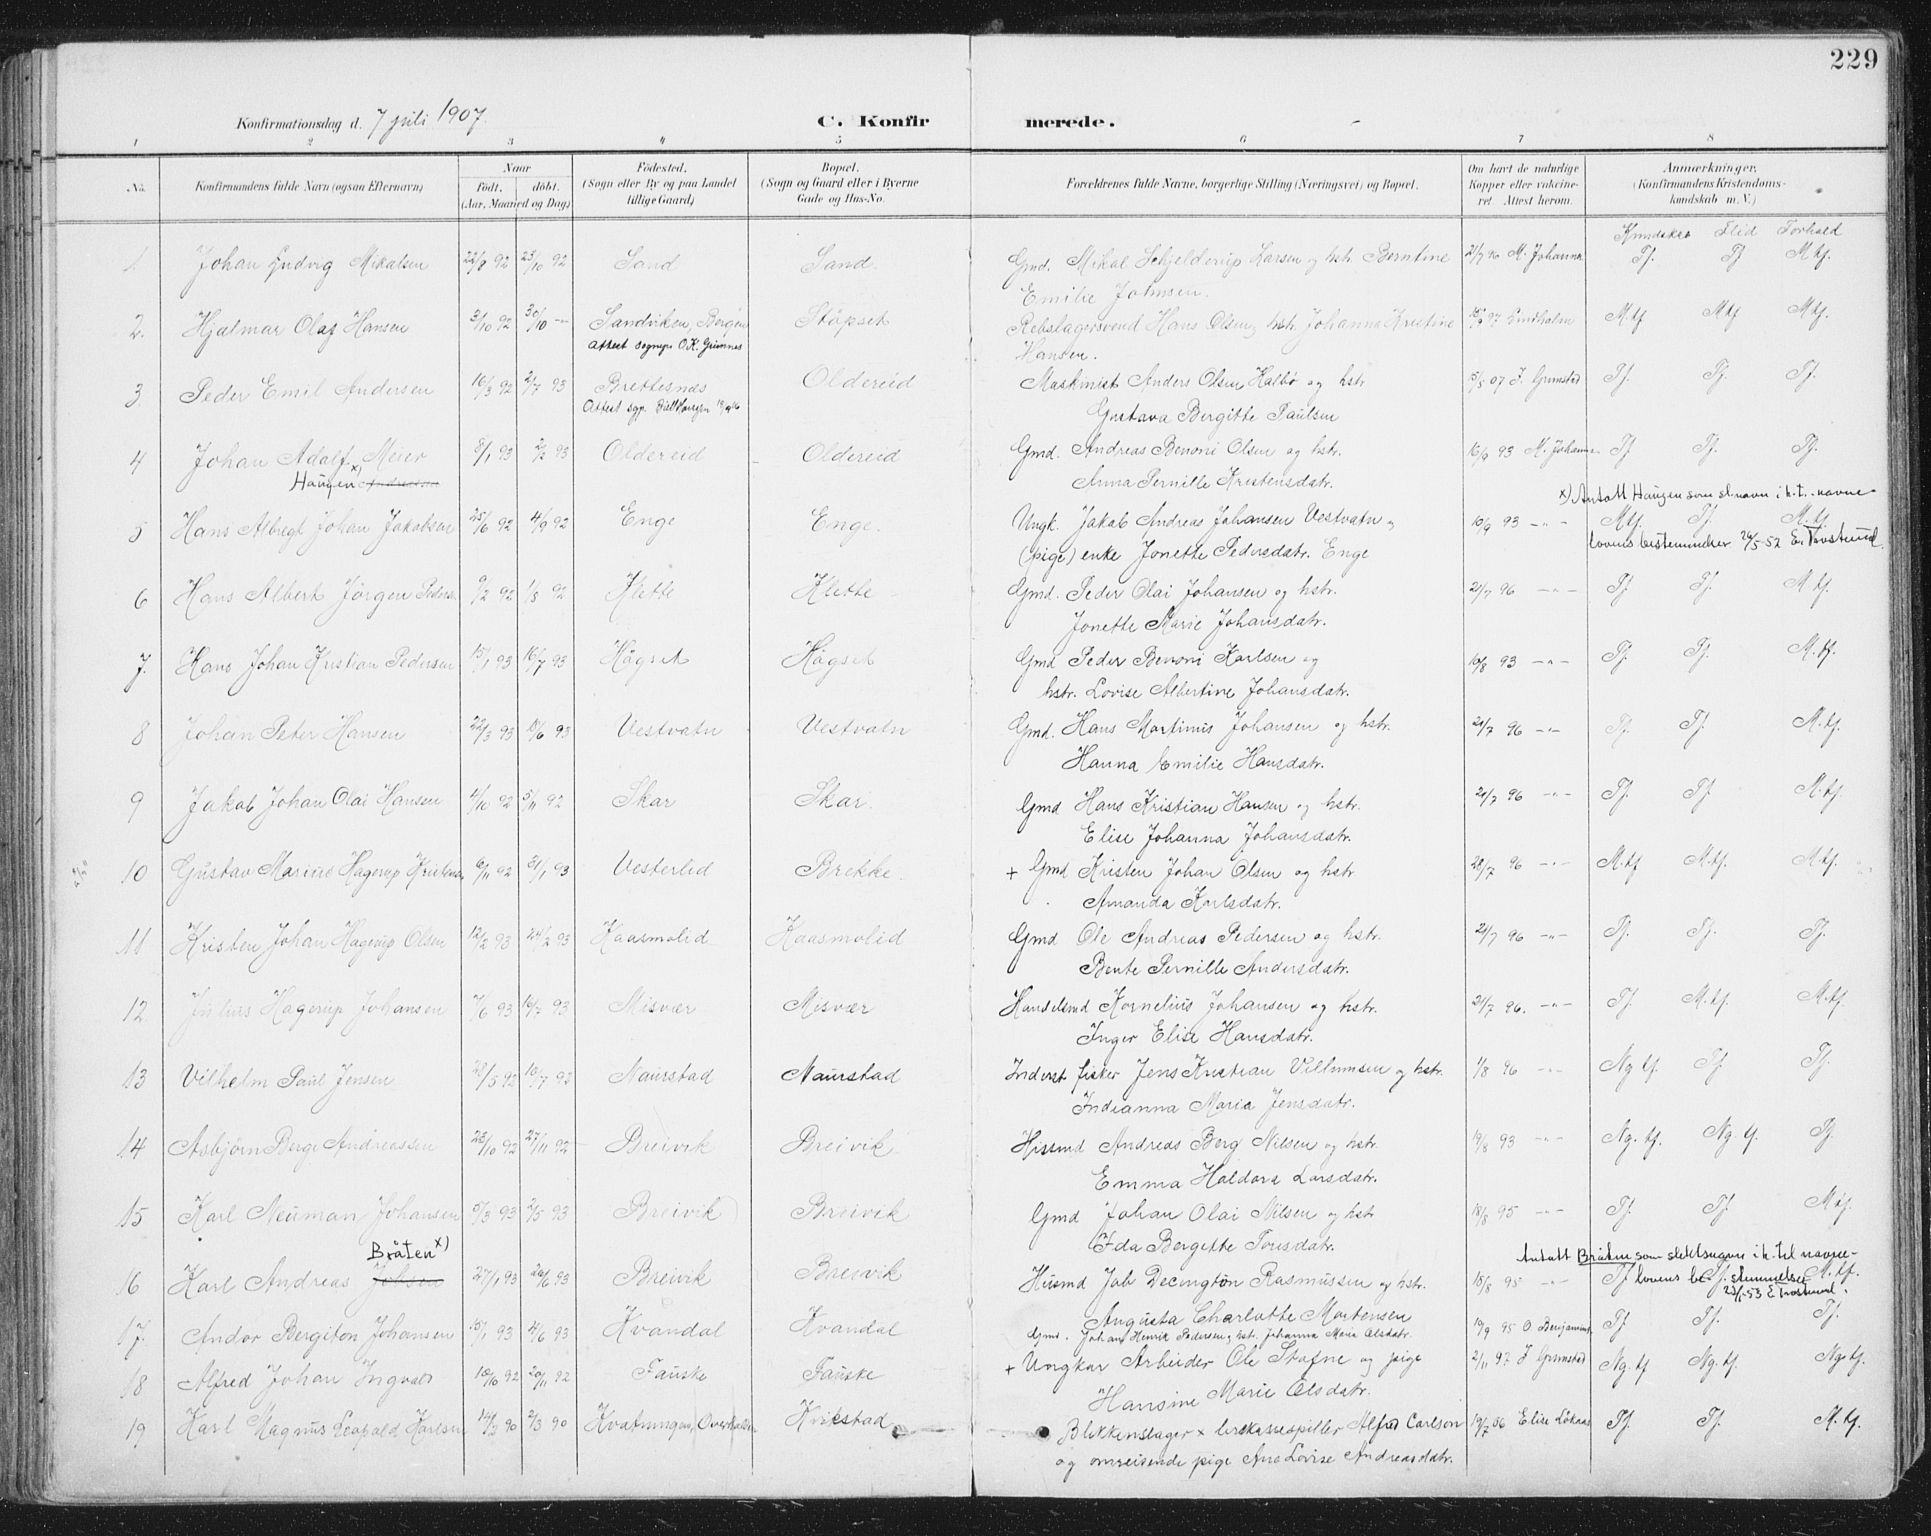 229
Konfirmationsdag d. 7 juli 1907.
C. Konfirmerede.
1 2 3 4 5 6 7 8
No.
Konfirmandens fulde Navn (ogsaa Efternavn)
Naar
født. døbt.
(Aar, Maaned og Dag)
Födested.
(Sogn eller By og paa Landet
tillige Gaard)
Bopæl.
(Sogn og Gaard eller i Byerne
Gade og Hus-No.
Forældrenes fulde Navne, borgerlige Stilling (Næringsvei) og Bopæl.
Om havt de naturlige
Kopper eller vakcineret.
Attest herom.
Anmærkninger.
(Konfirmandens Kristendomskundskab
m. V.)
Kundskab Flid Forhold
1. Johan Ludvig Mikalsen 22/8 92 23/10 92 Sand Sand. Gmd. Mikal Schjelderup Larsen og hstr. Berntine 21/7 96 M. Johanna Tf. Tf M.tf.
Emilie Johnsen.
2. Hjalmar Olaf Hansen 3/10 92 30/10 — Sandviken, Bergen Stöpset Rebslagersvend Hans Olsen, hstr. Johanna Kristine 97 Lindholm M.tf M.tf M.tf.
Attest sognepr. O.K. Grimnes
Hansen.
3 Peder Emil Andersen 16/3 92 2/7 93 Brettesnæs Oldereid Maskinist Anders Olsen Halbö og hstr 5/5 07 J. Grimstad Tf. Tf. Tf.
Attest sgp.
Gustava Bergitte Paulsen
4 Johan Adolf Meier 8/1 93 2/2 93 Oldereid Oldereid Gmd. Andreas Benoni Olsen og hstr. 10/9 93 M. Johanna Tf Tf. Tf.
Haugen x) Andreassen
Anna Pernille Kristensdatr.
x) Antatt Haugen som sl.navn i h.t. navne-
5 Hans Albregt Johan Jakobsen 25/6 92 4/9 92 Enge Enge. Ungk. Jakob Andreas Johansen Vestvatn og 10/9 93 -"- M.tf. Tf. M.tf.
lovens bestemmelser 26/5-52 E. Trostrud.
(pige) enke Jonette Pedersdatr. Enge
6 Hans Albert Jörgen Peders. 9/2 92 1/8 92 Klette Klette Gmd. Peder Olai Johansen og hstr. 21/7 96 -"- Tf Tf. M.tf.
Jonette Marie Johansdatr.
7. Hans Johan Kristian Pedersen 15/1 93 16/7 93 Högset Högset Gmd Peder Benoni Karlsen og 10/8 93 -"- Tf. Tf. M.tf.
hstr. Lovise Albertine Johansdatr.
8 Johan Peter Hansen 22/3 93 18/6 93 Vestvatn Vestvatn Gmd. Hans Martinus Johansen og hstr. 21/7 96 -"- Tf Tf. M.tf.
Hanna Emilie Hansdatr.
9 Jakob Johan Olai Hansen 4/10 92 5/11 92 Skar Skar. Gmd Hans Kristian Hansen og hstr. 21/7 96 -"- Tf Tf. M.tf.
Elise Johanna Johansdatr.
10 Gustav Marius Hagerup Kristensen 6/11 92 31/1 93 Vesterlid Brekke. + Gmd Kristen Johan Olsen og hstr 28/7 96 -"- M.tf M.tf. M.tf.
Amanda Karlsdatr.
11 Kristen Johan Hagerup Olsen 12/2 93 24/2 93 Kaasmolid Kaasmolid Gmd Ole Andreas Pedersen og hstr. 21/7 96 -"- Tf. Tf. Tf.
Bente Pernille Andersdatr.
12 Julius Hagerup Johansen 7/6 93 16/7 93 Misvær Misvær Handelsmd Kornelius Johansen og hstr. 21/7 96. -"- Tf M.tf. M.tf.
Inger Elise Hansdatr.
13 Vilhelm Paul Jensen 28/5 92 10/7 92 Naurstad Naurstad Inderst fisker Jens Kristian Villumsen og hstr. 1/8 96 -"- Ng tf. Tf Tf.
Indianna Maria Jensdatr.
14 Asbjörn Berge Andreassen 23/10 92 27/11 92 Breivik Breivik Husmd Andreas Berg Nilsen og hstr. 19/8 93 -"- Ng. tf. Ng. tf. Tf
Emma Haldora Larsdatr.
15 Karl Neuman Johansen 5/3 93 2/5 93 Breivik Breivik Gmd Johan Olai Nilsen og hstr 18/8 95 -"- Tf. Tf. M.tf.
Ida Bergitte Torisdatr.
Bråten x)
Antatt Bråten som slektsnavn i h. til navne-
16 Karl Andreas Jobsen 27/1 93 26/6 93 Breivik Breivik Husmd Job Decington Rasmussen og hstr. 18/8 95 -"- Tf lovens bestemmelser Tf. M.tf.
23/1-53 E Trostrud.
Augusta Charlotte Mortensen
17. Andor Bergiton Johansen 15/1 93 4/6 93 Kvandal Kvandal Gmd. Johan Henrik Pedersen og hstr. Johanna Maria Olsdatr. 19/9 95 O Benjaminsen Tf Tf. Tf.
18 Alfred Johan Ingvald 10/10 92 20/11 92 Fauske Fauske + Ungkar Arbeider Ole Stofne og pige 2/11 97 J Grimstad Ng. tf Ng. tf. Ng. tf.
Hansine Marie Olsdatr.
19 Karl Magnus Leopold Karlsen 14/2 90 2/3 90 Kvatningen, Overhalden Kvikstad Blikkenslager x lirekassespiller Alfred Carlson 19/7 06 Elise Løkaas Tf. Tf. M.tf.
og omreisende pige Ane Lovise Andreasdatr.